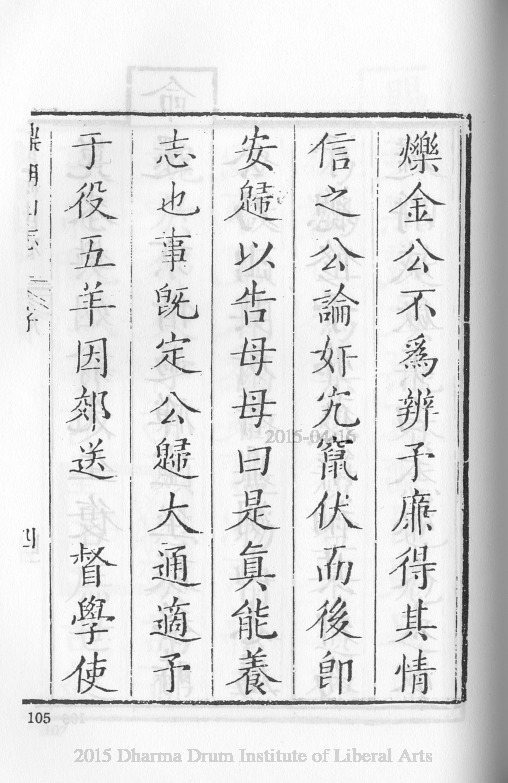 爍金公不為辨予廉得其情
信之公論奸宄竄伏而後卽
安歸以告母母曰是眞能養
志也事旣定公歸大通適予
于役五羊因郊送　督學使
鼎湖山志
四
105
2015-04-16
2015 Dharma Drum Institute of Liberal Arts